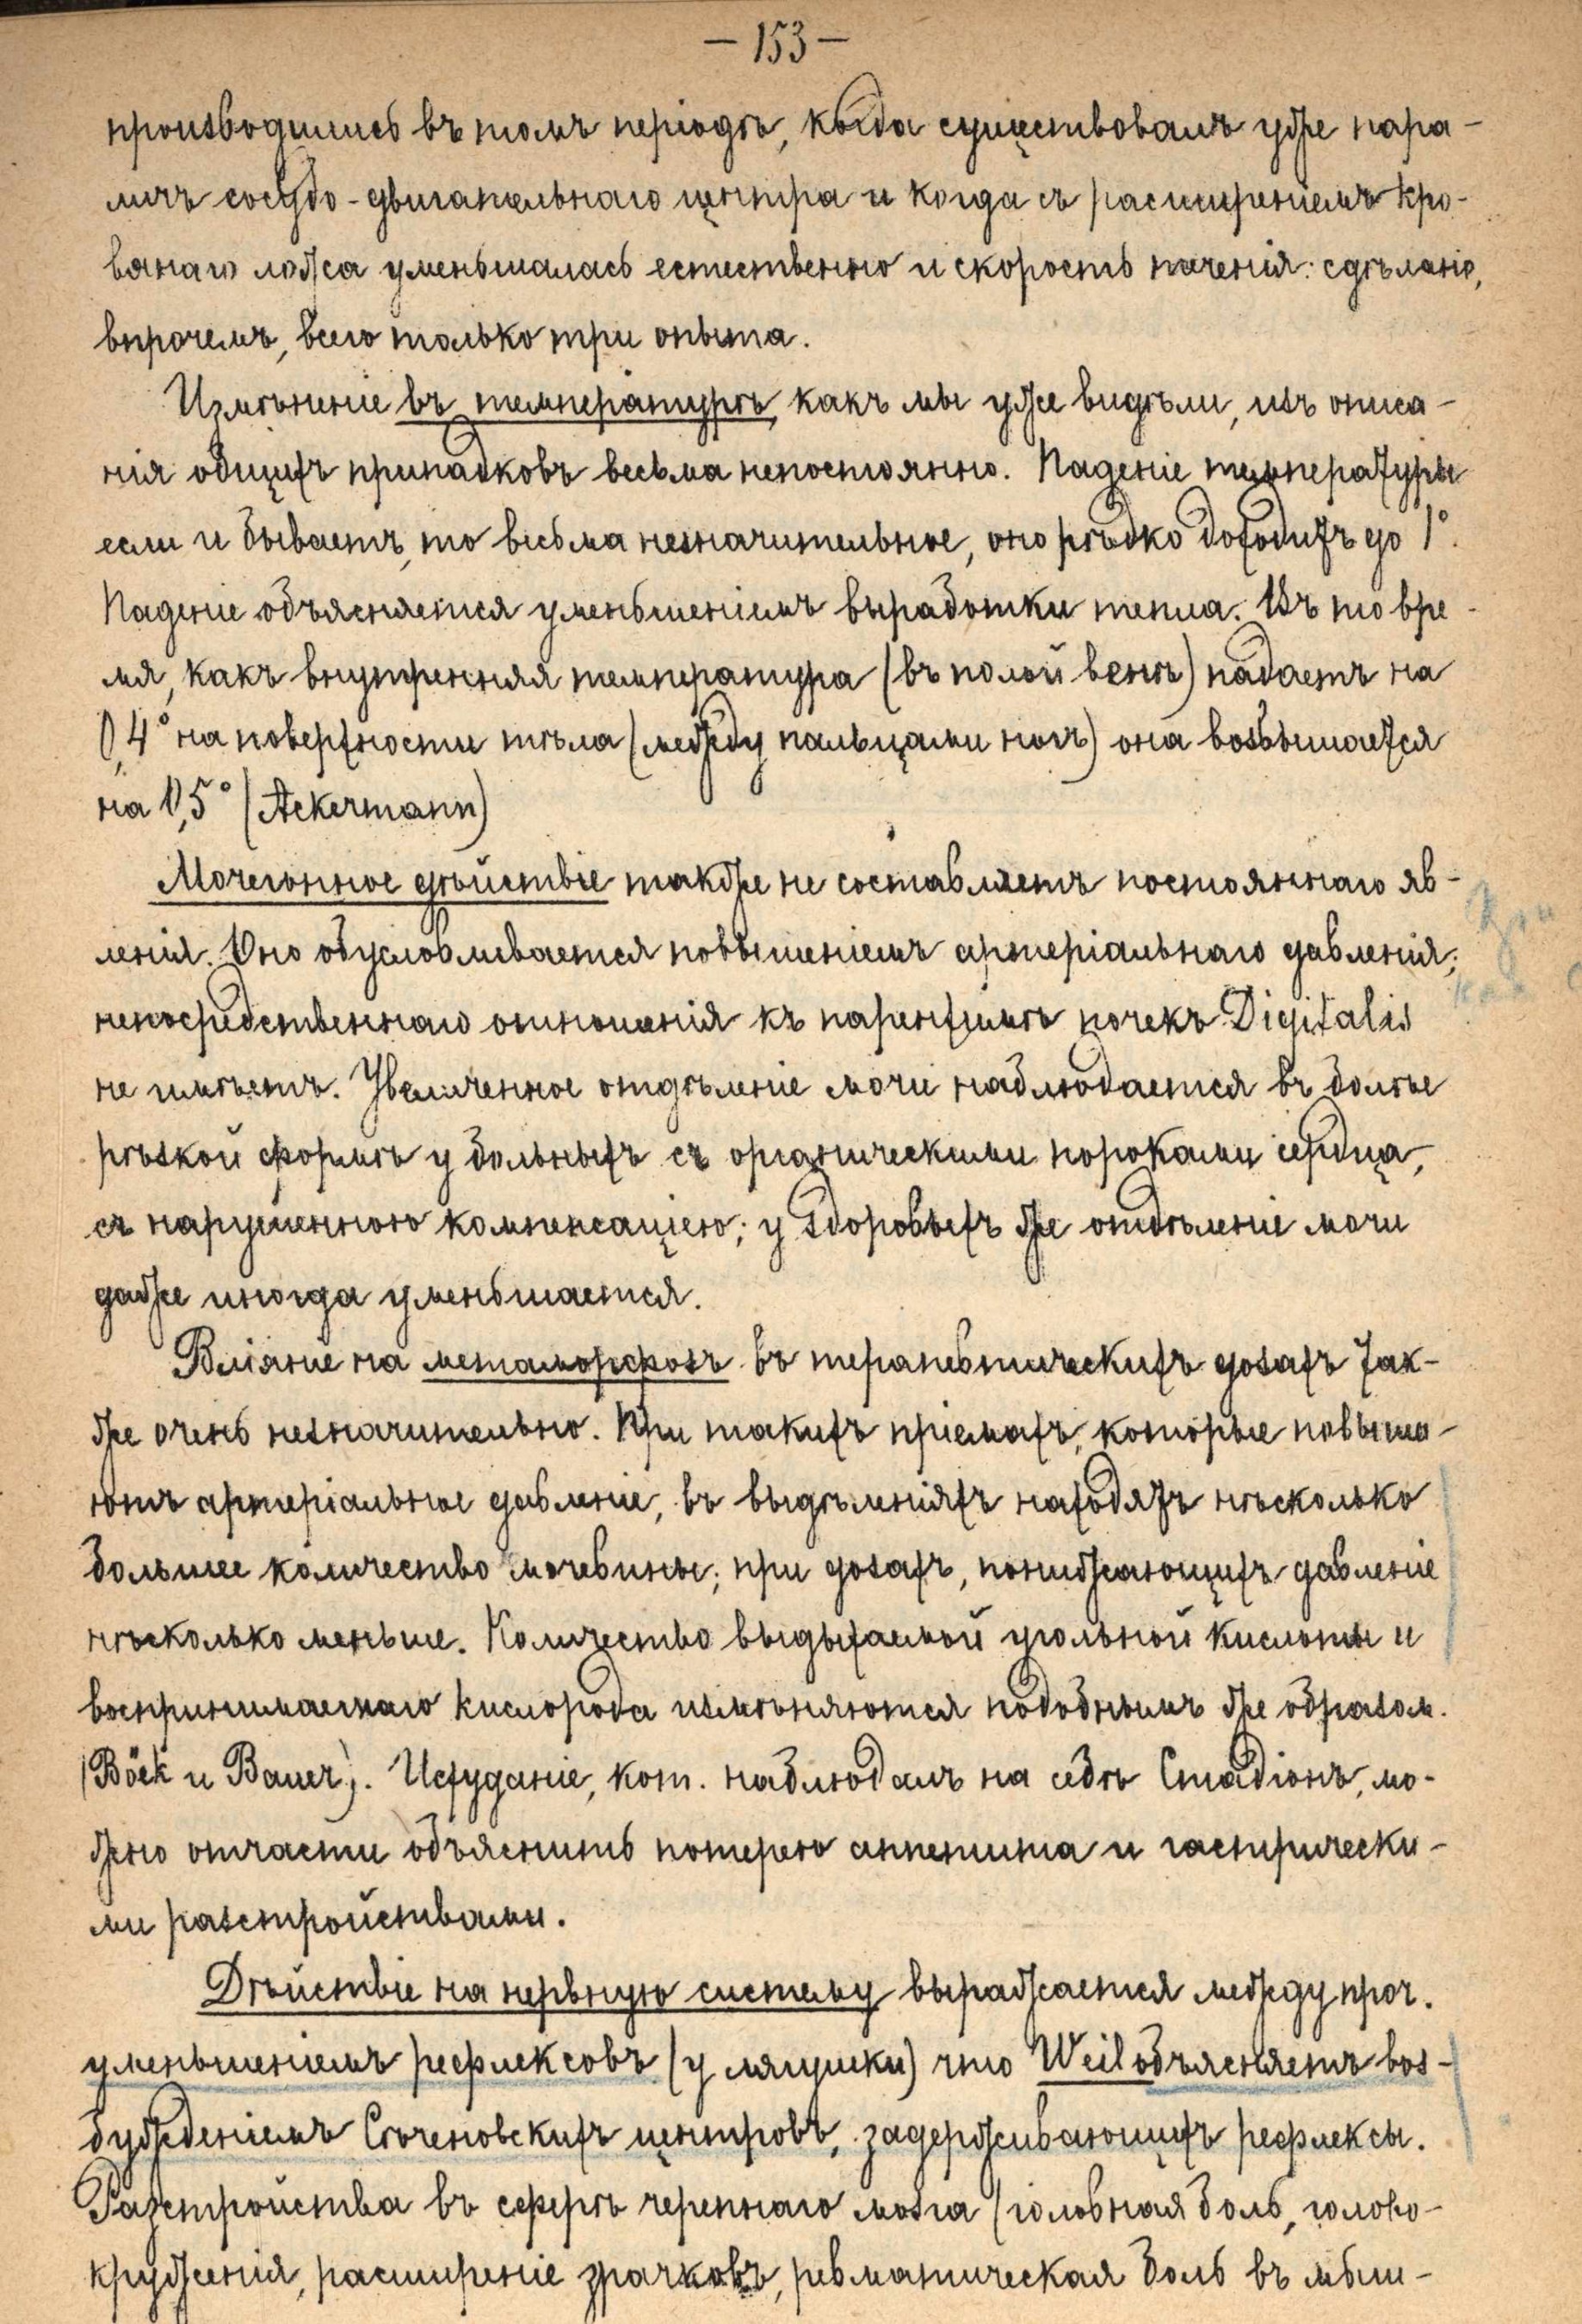 — 153 —
производились въ томъ періодѣ, когда существовалъ уже пара-
личъ сосудо-двигательнаго центра и когда съ расширеніемъ кро-
вянаго ложа уменьшалась естественно и скорость теченія: сдѣлано,
впрочемъ, всего только три опыта.
Измѣненіе въ температурѣ, какъ мы уже видѣли, изъ описа-
нія общихъ припадковъ весьма непостоянно. Паденіе температуры
если и бываетъ, то весьма незначительное, оно рѣдко доходитъ до 1°.
Паденіе объясняется уменьшеніемъ выработки тепла. Въ то вре-
мя, какъ внутренняя температура (въ полой венѣ) падаетъ на
0,4° на поверхности тѣла (между пальцами ногъ) она возвышается
на 0,5° (Ackermann)
Мочегонное дѣйствіе также не составляетъ постояннаго яв-
ленія. Оно обусловливается повышеніемъ артеріальнаго давленія;
непосредственнаго отношенія къ паренхимѣ почекъ Digitalis
не имѣетъ. Увеличенное отдѣленіе мочи наблюдается въ болѣе
рѣзкой формѣ у больныхъ съ органическими пороками сердца,
съ нарушенною компенсаціею; у здоровыхъ же отдѣленіе мочи
даже иногда уменьшается.
Вліяніе на метаморфозъ въ терапевтическихъ дозахъ так-
же очень незначительно. При такихъ пріемахъ, которые повыша-
ютъ артеріальное давленіе, въ выдѣленіяхъ находятъ нѣсколько
большее количество мочевины; при дозахъ, понижающихъ давленіе
нѣсколько меньше. Количество выдыхаемой угольной кислоты и
воспринимаемаго кислорода измѣняются подобнымъ же образом.
(Böck и Bauer). Исхуданіе, кот. наблюдалъ на себѣ Стадіонъ, мо-
жно отчасти объяснить потерею аппетита и гастрически-
ми разстройствами.
Дѣйствіе на нервную систему выражается между проч.
уменьшеніемъ рефлексовъ (у лягушки) что Weil объясняетъ воз-
бужденіемъ Сѣченовскихъ центровъ, задерживающихъ рефлексы.
Разстройства въ сферѣ черепнаго мозга (головная боль, голово-
круженія, расширеніе зрачковъ, ревматическая боль въ мыш-